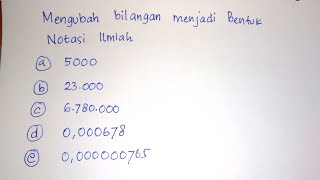 Mengubah bilangan menjadi Bentuk
Notasi Ilmiah
a 5000
b 23.000
c 6.780.000
d 0,000678
e 0,000000765